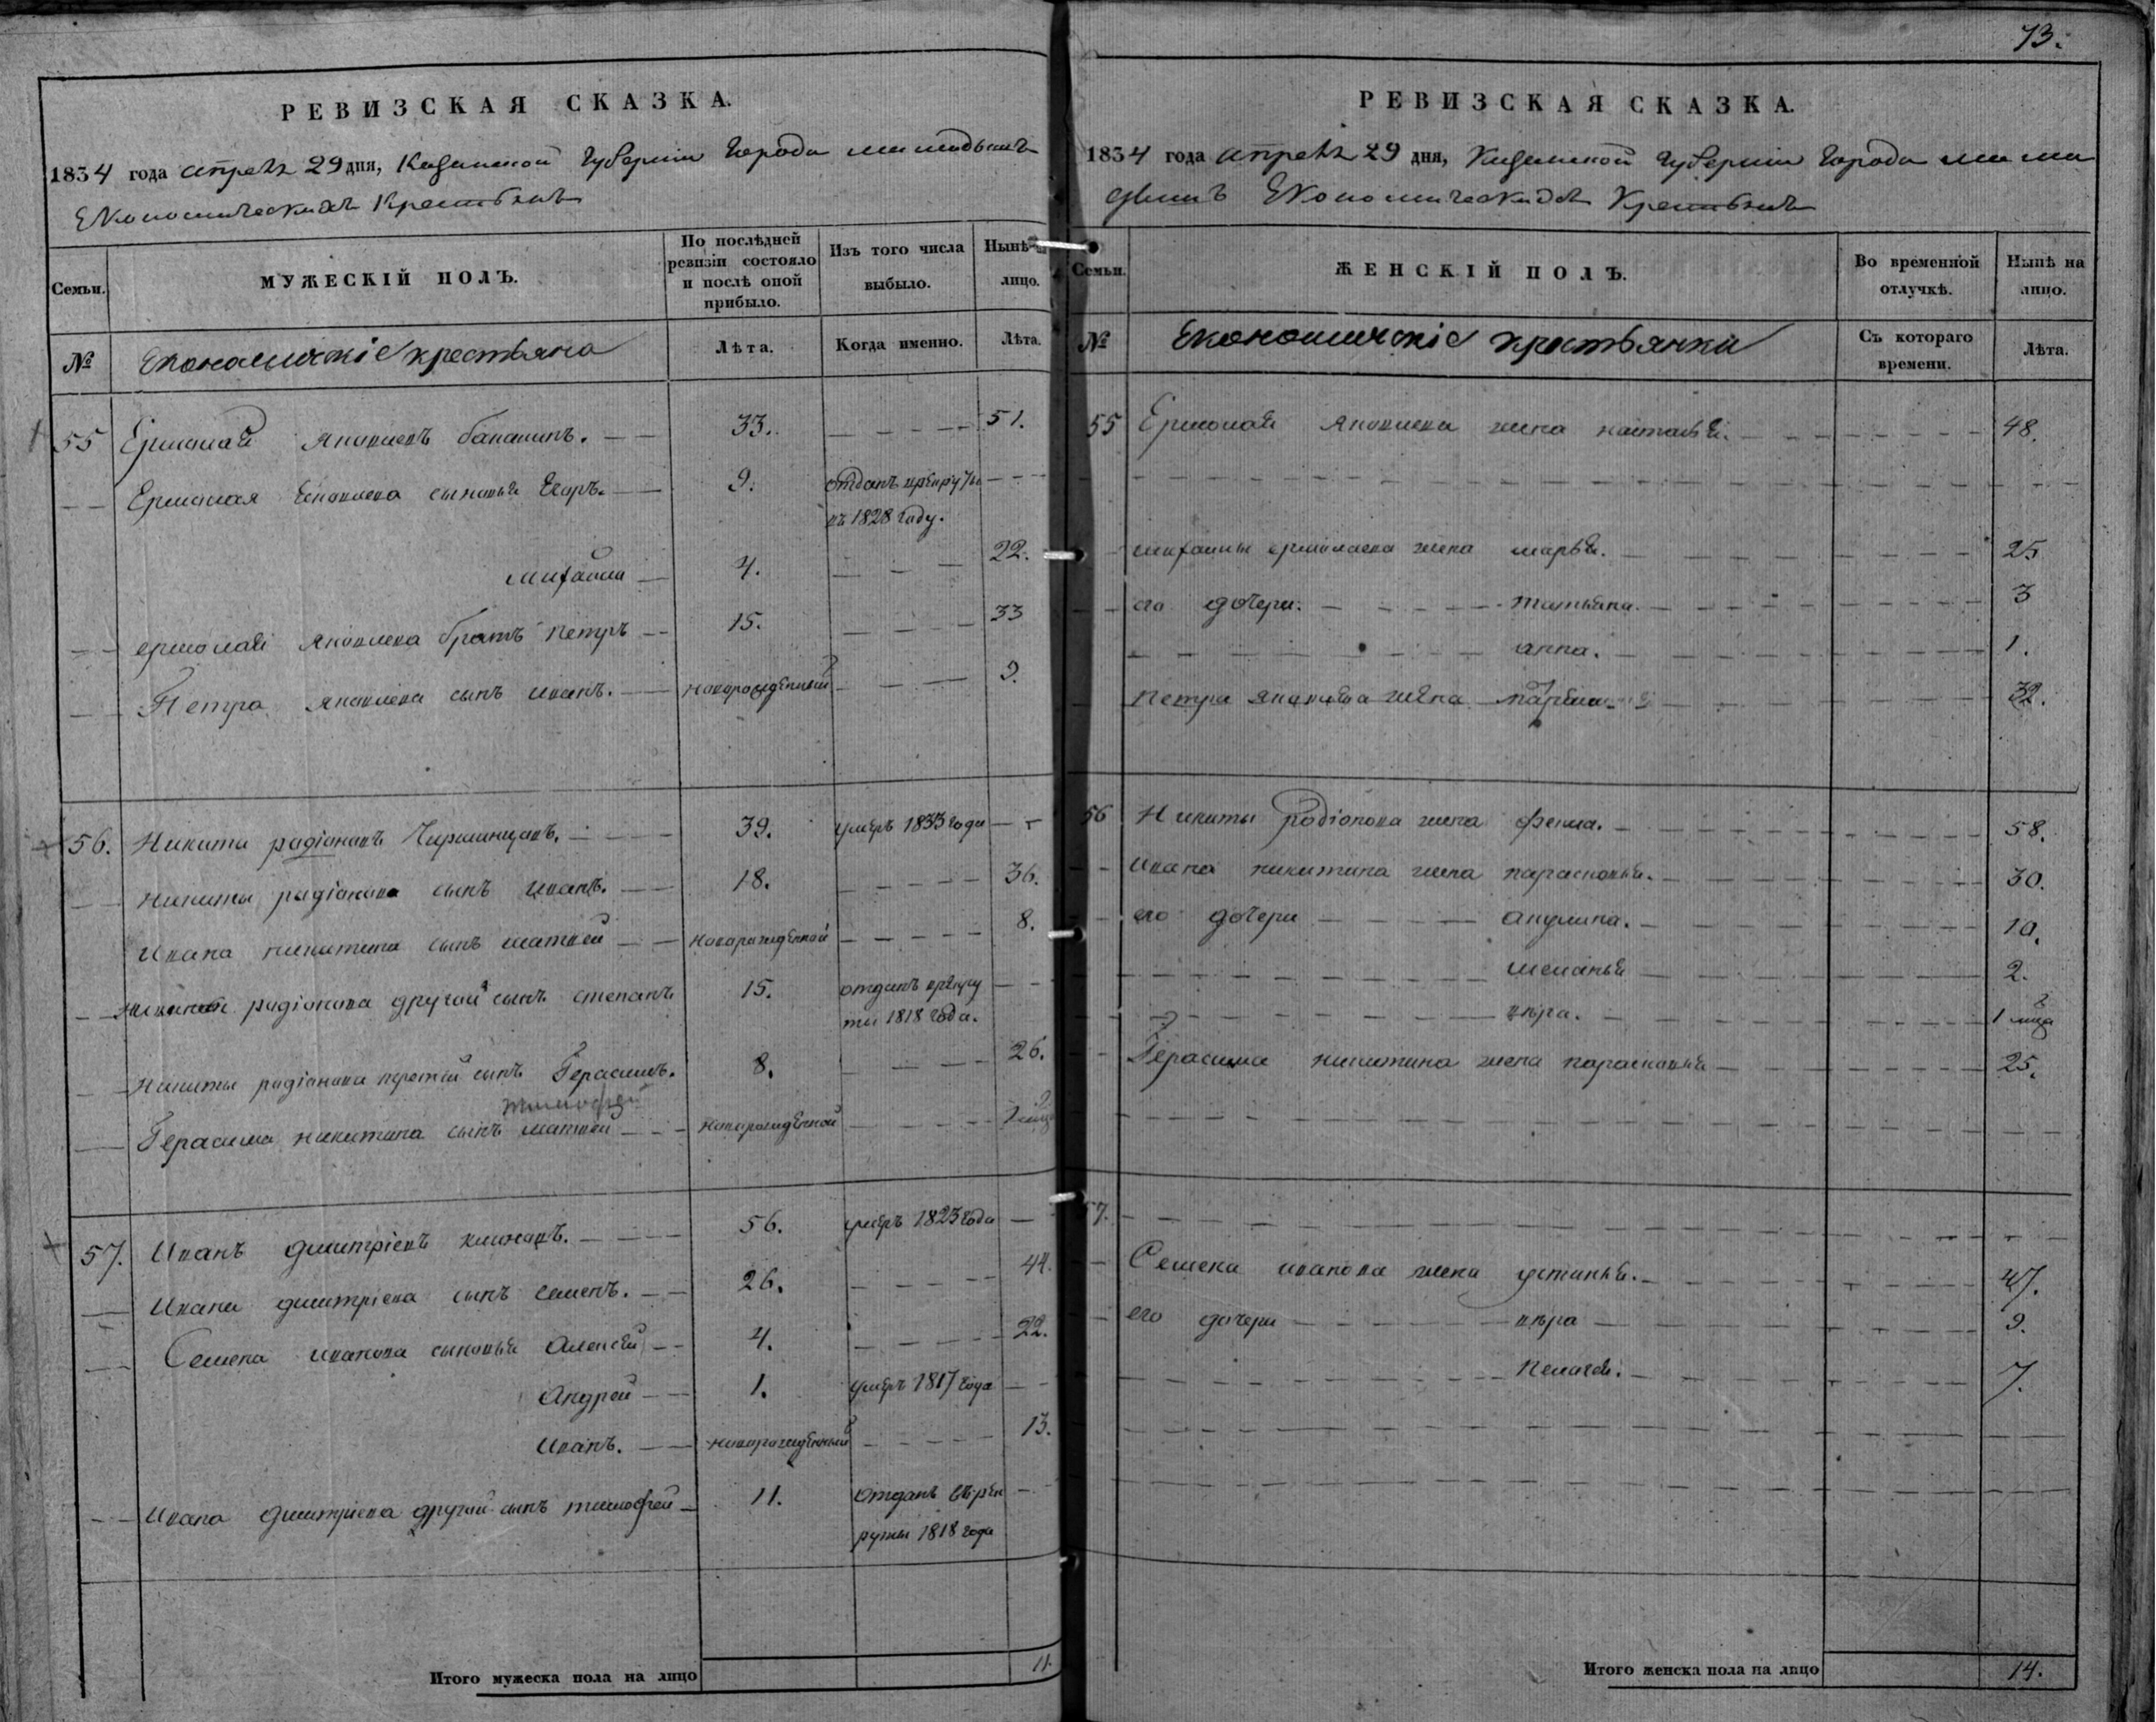 РЕВИЗСКАЯ СКАЗКА.
1834 года апреля 29 дня, Казанской Губернии Города
Економическихъ Крестьянъ
Семьи.
МУЖЕСКІЙ ПОЛЪ.
По послѣдней ревизіи состояло и послѣ оной прибыло.
Изъ того числа выбыло.
Нынѣ на лицо.
№
Економическіе крестьяна
Лѣта.
Когда именно.
Лѣта.
55 Ермолай Яковлевъ 33. 51.
Ермолая Яковлева сыновья Егоръ. 9. отданъ врекруты
въ 1828 году.
михайла 4. 22.
ермолая Яковлева братъ петръ 15. 33
Петра яковлева сынъ иванъ. новорожденный 9.
56. Никита радіоновъ 39. умеръ 1833 года
никиты радіонова сынъ иванъ. 18. 36.
Ивана никитина сынъ матвей новорожденной 8.
никиты радіонова другой сынъ степанъ 15. отданъ врекру
ты 1818 года.
никиты радіонова третей сынъ Герасимъ. 8. 26.
тимофей
Герасима никитина сынъ матвей новорожденной
57. Иванъ дмитріевъ 56. умеръ 1823 года
Ивана дмитріева сынъ семенъ. 26. 44.
Семена иванова сыновья Алексей 4. 22.
Андрей 1. умеръ 1817 года
Иванъ. новорожденный 13.
Ивана дмитріева другой сынъ тимофей 11. отданъ врек
руты 1818 года
Итого мужеска пола на лицо 11.
73.
РЕВИЗСКАЯ СКАЗКА.
1834 года апреля 29 дня, Казанской Губерніи Города
Економическихъ Крестьянъ
Семьи.
ЖЕНСКІЙ ПОЛЪ.
Во временной отлучкѣ.
Нынѣ на лицо.
№
Економическіе крестьянки
Съ котораго времени.
Лѣта.
55 Ермолая Яковлева жена настасья. 48.
михайлы ермолаева жена марья. 25
его дочери. татьяна. 3
анна. 1.
петра яковлева жена 32.
56 Никиты Родіонова жена фекла. 58.
Ивана никитина жена парасковья. 30.
его дочери акулина. 10.
меланья 2.
вѣра. 1
Герасима никитина жена парасковья 25.
57.
Семена иванова жена устинья. 47.
его дочери вѣра 9.
пелагея. 7.
Итого женска пола на лицо 14.